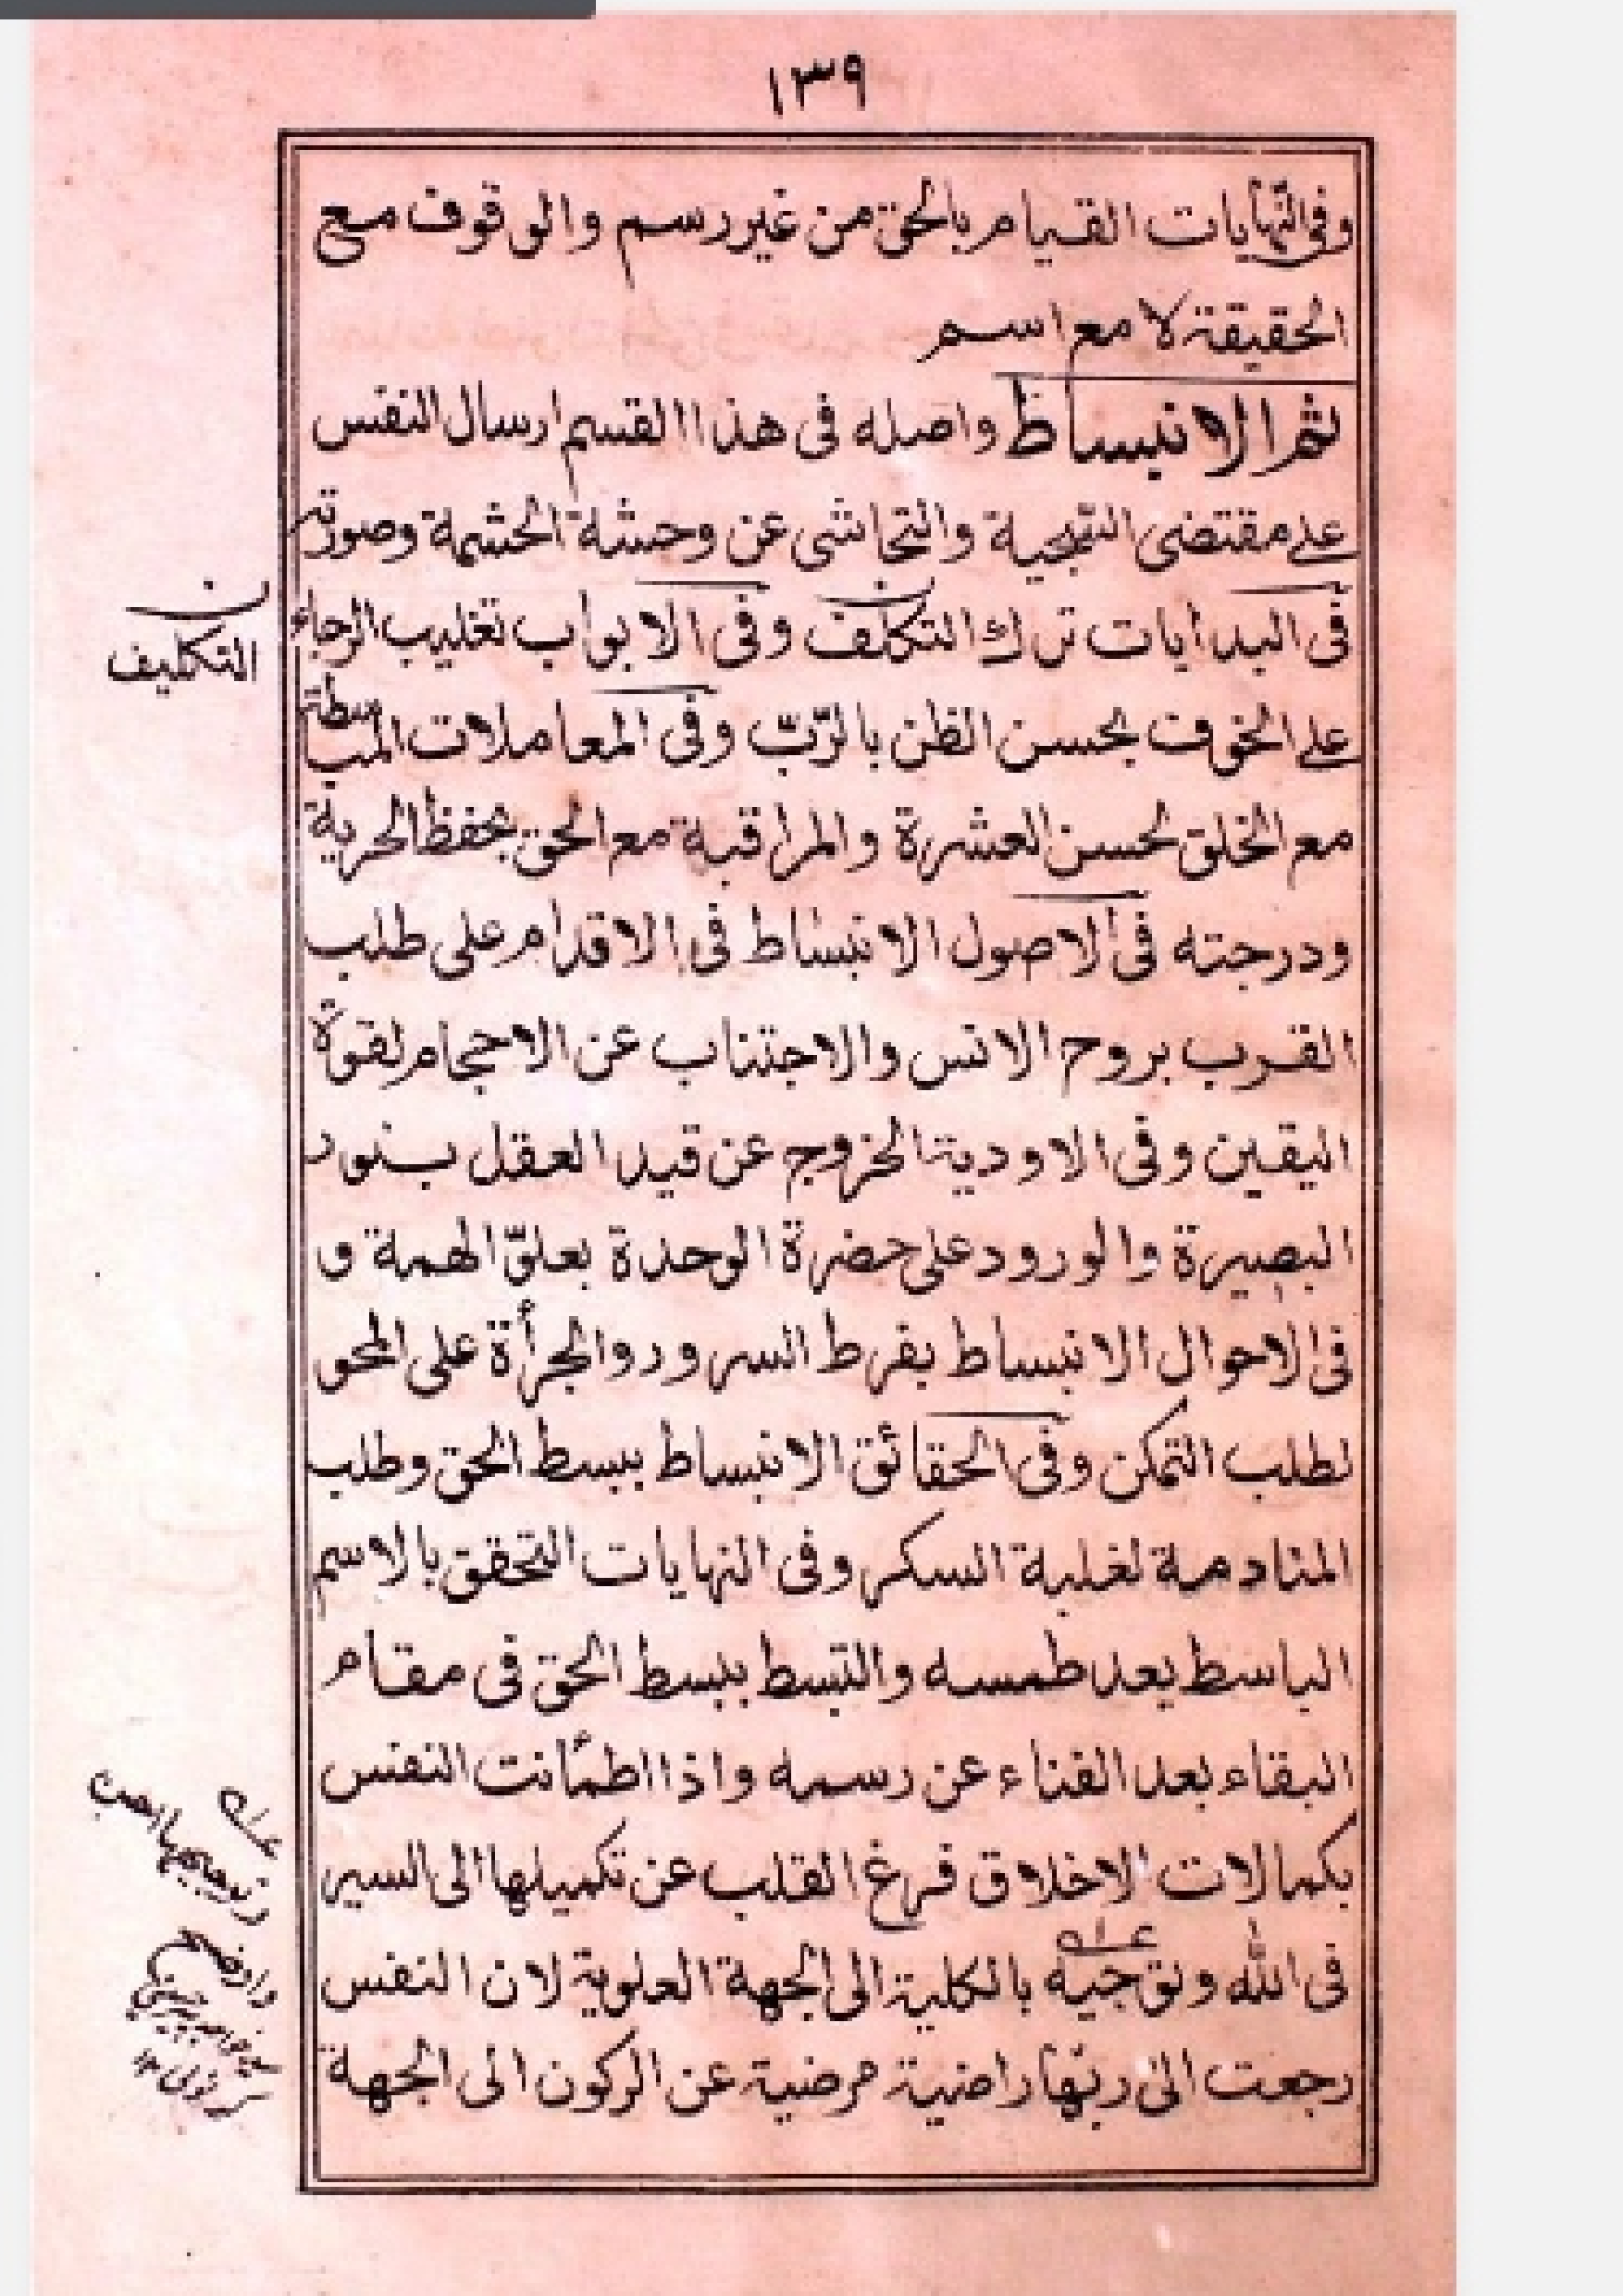 ١٣٩
وفى النهايات القيام بالحق من غير رسم والوقوف مع
الحقيقة لا مع اسم
ثم الانبساط واصله فى هذا القسم ارسال النفس
على مقتضى السجية والتحاشى عن وحشة الحشمة وصورته
فى البدايات ترك التكلف وفى الابواب تغليب الرجاء
التكليف
على الخوف بحسن الظن بالرّبّ وفى المعاملات المباسطة
مع الخلق لحسن العشرة والمراقبة مع الحق بحفظ الحرية
ودرجته فى الاصول الانبساط فى الاقدام على طلب
القرب بروح الانس والاجتناب عن الاحجام لقوة
اليقين وفى الاودية الخروج عن قيد العقل بنور
البصيرة والورود على حضرة الوحدة بعلوّ الهمة و
فى الاحوال الانبساط بفرط السرور والجرأة على المحو
لطلب التمكن وفى الحقائق الانبساط ببسط الحق وطلب
المنادمة لغلبة السكر وفى النهايات التحقق بالاسم
الباسط بعد طمسه والتبسط ببسط الحق فى مقام
البقاء بعد الفناء عن رسمه واذا اطمأنت النفس
بكمالات الاخلاق فرغ القلب عن تكميلها الى السير
فى الله وتوجيه بالكلية الى الجهة العلوية لان النفس
رجعت الى ربّها راضية مرضية عن الركون الى الجهة